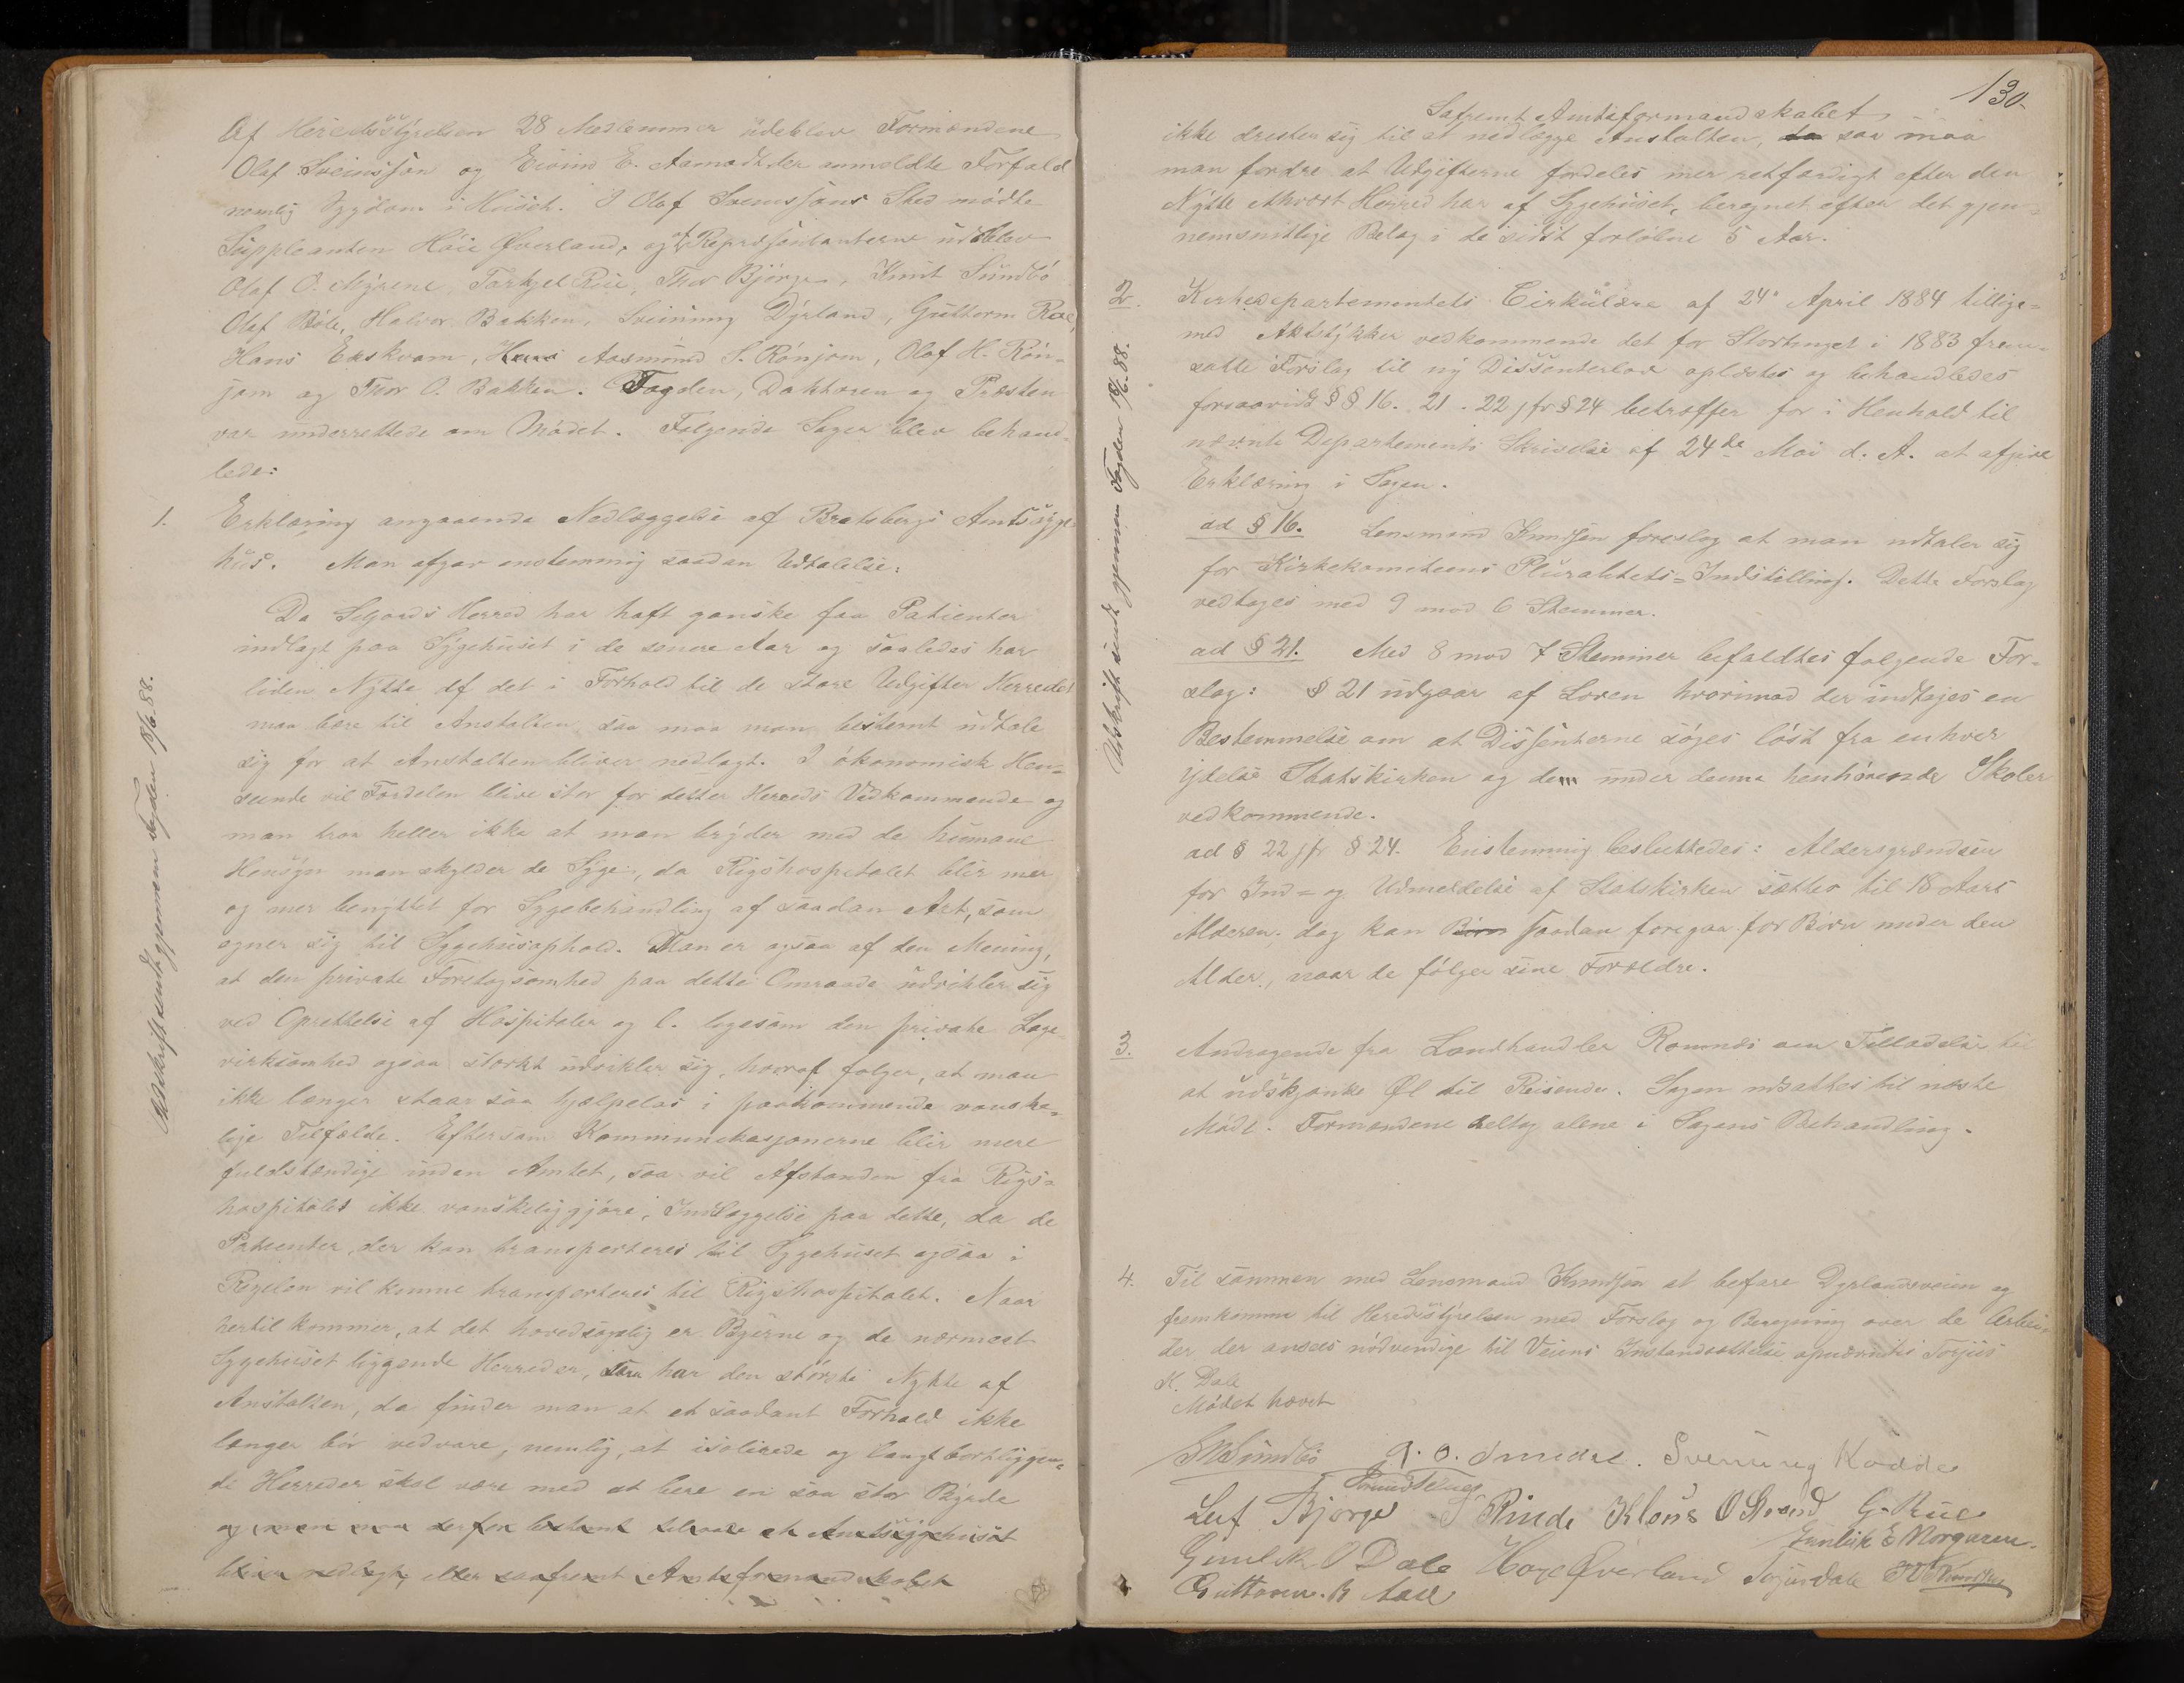 Af Heredsstyrelsen 28 Medlemmer udeblev Formændene
Olaf Sveinssøn og Eivind E. Aamodt der anmeldte Forfald
nemlig Sygdom i Huset. I Olaf Sveinssøns Sted mødte
Suppleanten Høie Øverland, og af Repræsentanterne udeblev
Olaf O. Myrene, Torkjel Rue, Thor Bjørge, Knut Sundbø
Olaf Bøle, Halvor Bakken, Sveinung Dyrland, Guttorm Roe,
Hans Ekskvam, Hans Aasmund S. Rønjom, Olaf H. Røn-
jom og Thor O. Bakken. Fogden, Doktoren og Præsten
var underrettede om Mødet. Følgende Sager blev behand-
lede:
1. Erklæring angaaende Nedlæggelse af Bratsbergs Amtssyge
hus. Man afgav enstemmig saadan Udtalelse:
Da Seljords Herred har haft ganske faa Patienter
indlagt paa Sygehuset i de senere Aar og saaledes har
liden Nytte af det i Forhold til de store Udgifter Herredet
maa bære til Anstalten saa maa man bestemt udtale
sig for at Anstalten bliver nedlagt. I økonomisk Hen-
seende vil Fordelen blive stor for dette Herreds Vedkommende og
man tror heller ikke at man bryder med de humane
Hensyn man skylder de Syge, da Rigshospitalet blir mer
og mer benyttet for Sygebehandling af saadan Art, som
egner sig til Sygehusophold. Man er ogsaa af den Mening,
at den private Foretagsomhed paa dette Omraade udvikler sig
ved Oprettelse af Hospitaler og l. ligesom den private Læge
virksomhed ogsaa stærkt udvikler sig, hvoraf følger, at man
ikke længer staar saa hjælpeløs i paakommende vanske-
lige Tilfælde. Eftersom Kommunikasjonerne blir mere
fuldstændige inden Amtet, saa vil Afstanden fra Rigs-
hospitalet ikke vanskeliggjøre Indlæggelse paa dette, da de
Patienter, der kan transporteres til Sygehuset ogsaa i
Regelen vil kunne transporteres til Rigshospitalet. Naar
hertil kommer, at det hovedsagelig er Byerne og de nærmest
Sygehuset liggende Herreder, som har den største Nytte af
Anstalten, da finder man at et saadant Forhold ikke
længer bør vedvare, nemlig, at isolerede og langt bortliggen-
de Herreder skal være med at bere en saa stor Byrde
og man maa derfor bestemt tilraade at Amtssygehuset
bliver nedlagt, eller saafremt Amtsformandskabet
Udskrift sendt gjennem Fogden 18/6.88.
130.
Safremt Amtsformandskabet
ikke drester sig til at nedlægge Anstalten, da saa maa
man fordre at Udgifterne fordeles mer retfærdigt efter den
Nytte ethvert Herred har af Sygehuset, beregnet efter det gjen-
nemsnitlige Belæg i de sidst forløbne 5 Aar.
2. Kirkedepartementets Cirkulære af 24de April 1884 tillige-
med Aktstykker vedkommende det for Stortinget i 1883 frem-
satte Forslag til ny Dissenterlov oplæstes og behandledes
forsaavidt §§ 16. 21. 22 jfr § 24 betræffer for i Henhold til
nævnte Departements Skrivelse af 24de Mai d. A. at afgive
Erklæring i Sagen.
ad § 16. Lensmand Knudsen foreslog at man udtaler sig
for Kirkekomiteens Pluralitets-Indstilling. Dette Forslag
vedtoges med 9 mod 6 Stemmer.
ad § 21. Med 8 mod 7 Stemmer bifaldtes følgende For-
slag: § 21 udgaar af Loven hvorimod der indtages en
Bestemmelse om at Dissenterne søges løst fra enhver
ydelse Statskirken og dem under denne henhørende Skoler
vedkommende.
ad § 22 jfr § 24. Enstemmig besluttedes: Aldersgrændsen
for Ind- og Udmeldelse af Statskirken sættes til 18 Aars
Alderen, dog kan Børn saadan foregaa for Børn under den
Alder, naar de følger sine Forældre.
3. Andragende fra Landhandler Romnes om Tilladelse til
at udskjænke Øl til Reisende. Sagen udsattes til næste
Møde. Formændene deltog alene i Sagens Behandling.
4. Til sammen med Lensmand Knudsen at befare Dyrlandsveien og
fremkomme til Heredsstyrelsen med Forslag og Beregning over de Arbei
der der ansees nødvendige til Veiens Instandsættelse opnævntes Torjus
K. Dale
Mødet hævet
Sundbø G. O. Smedal. Svenung Kødde
Leif Bjørge Rinde Kløns O Strand G. Rue
Gunleik E Norgaren
Gunl O Dale Høye Øverland Torjus Dale Knudsen
Guttorm
Udskrift sendt gjennem Fogden 18/6.88.